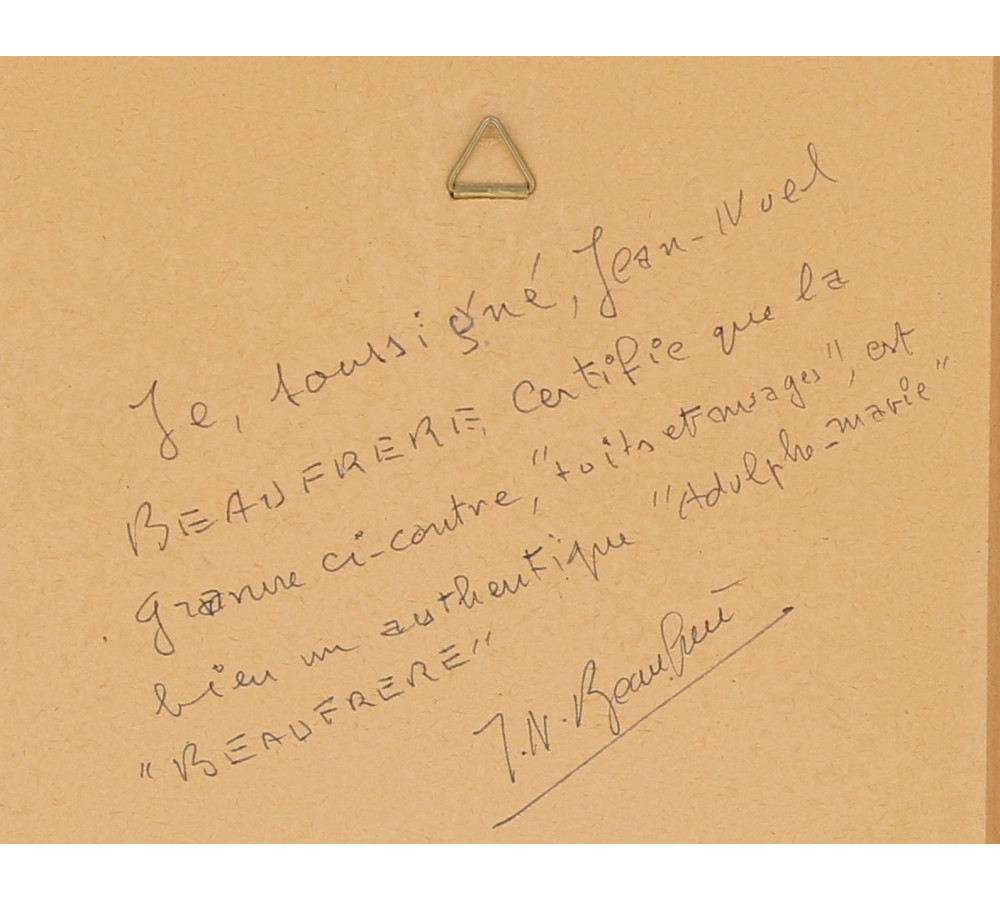 Je, soussigné, Jean-Noel
BEAUFRERE certifie que la
gravure ci-contre, "toits et nuages", est
bien un authentique "Adolphe-marie"
"BEAUFRERE"
J.N. Beaufrere